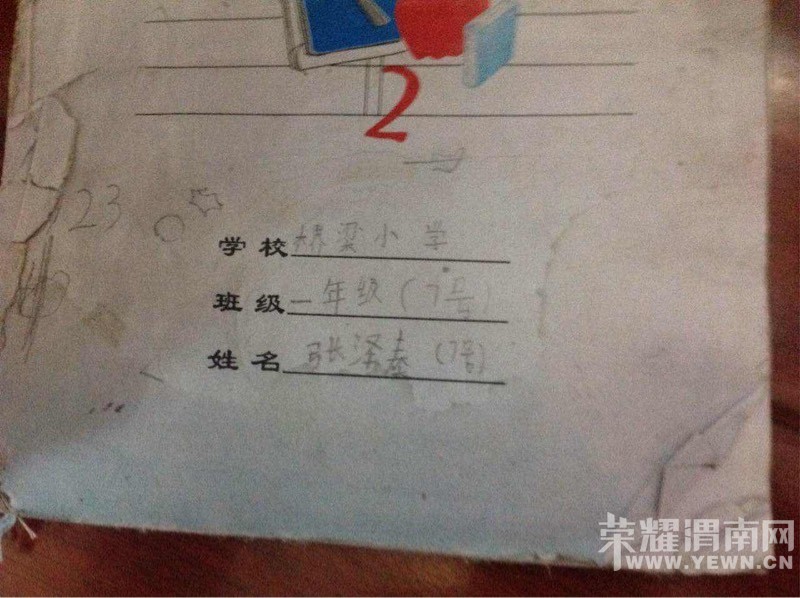 2
23
学校 桥梁小学
班级 一年级（7号）
姓名 张泽鑫（7号）
荣耀渭南网
WWW.YEWN.CN